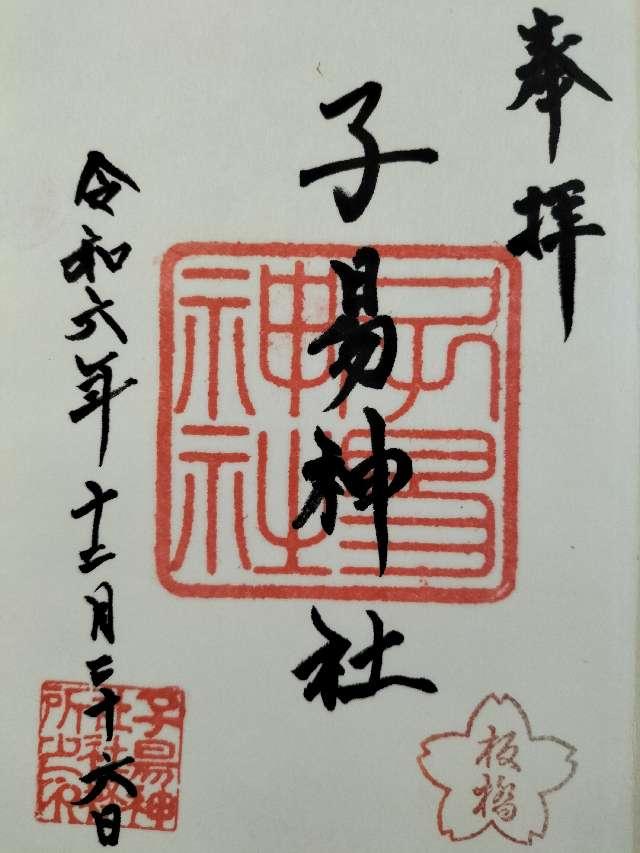 奉拝
子易神社
子易神社
令和六年十二月二十六日
子易神社社務所之印
板橋